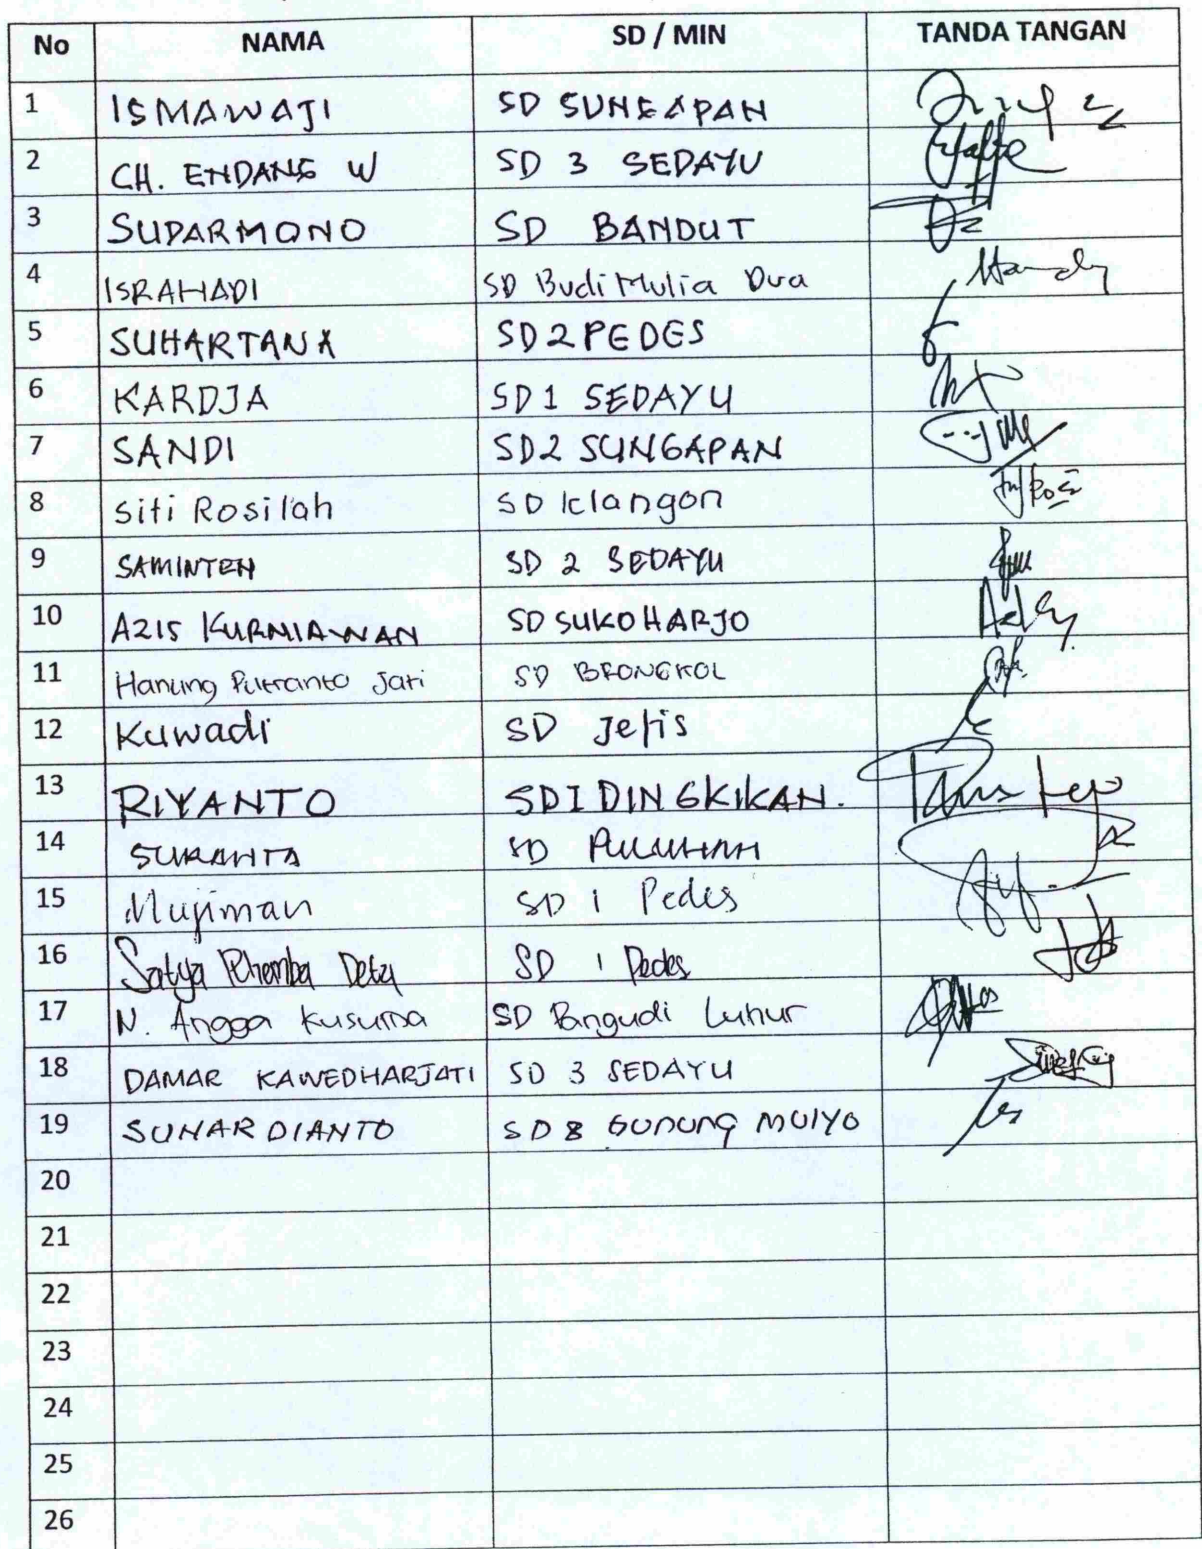 No NAMA SD / MIN TANDA TANGAN
1 ISMAWAJI SD SUNGAPAN
2 CH. ENDANG W SD 3 SEDAYU
3 SUDARMONO SD BANDUT
4 ISRAHADI SD Budi Mulia Dua
5 SUHARTANA SD 2 PEDES
6 KARDJA SD 1 SEDAYU
7 SANDI SD2 SUNGAPAN
8 Siti Rosilah SD Klangon
9 SAMINTEN SD 2 SEDAYU
10 AZIS KURNIAWAN SD SUKOHARJO
11 Hanung Putranto Jati SD BRONGKOL
12 Kuwadi SD Jetis
13 RIYANTO SD I DINGKIKAN.
14 SURANTA SD PULUHAN
15 Mujiman SD 1 Pedes
16 Satya Deta SD 1 Pedes
17 N. Angga Kusuma SD Pangudi Luhur
18 DAMAR KAWEDHARJATI SD 3 SEDAYU
19 SUNARDIANTO SD GUNUNG MULYO
20
21
22
23
24
25
26